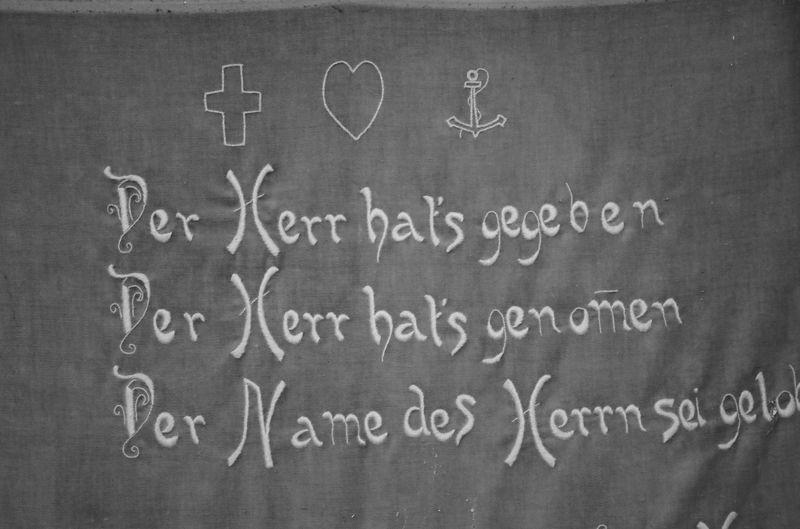 Der Herr hat's gegeben
Der Herr hat's genom̅en
Der Name des Herrn sei gelob